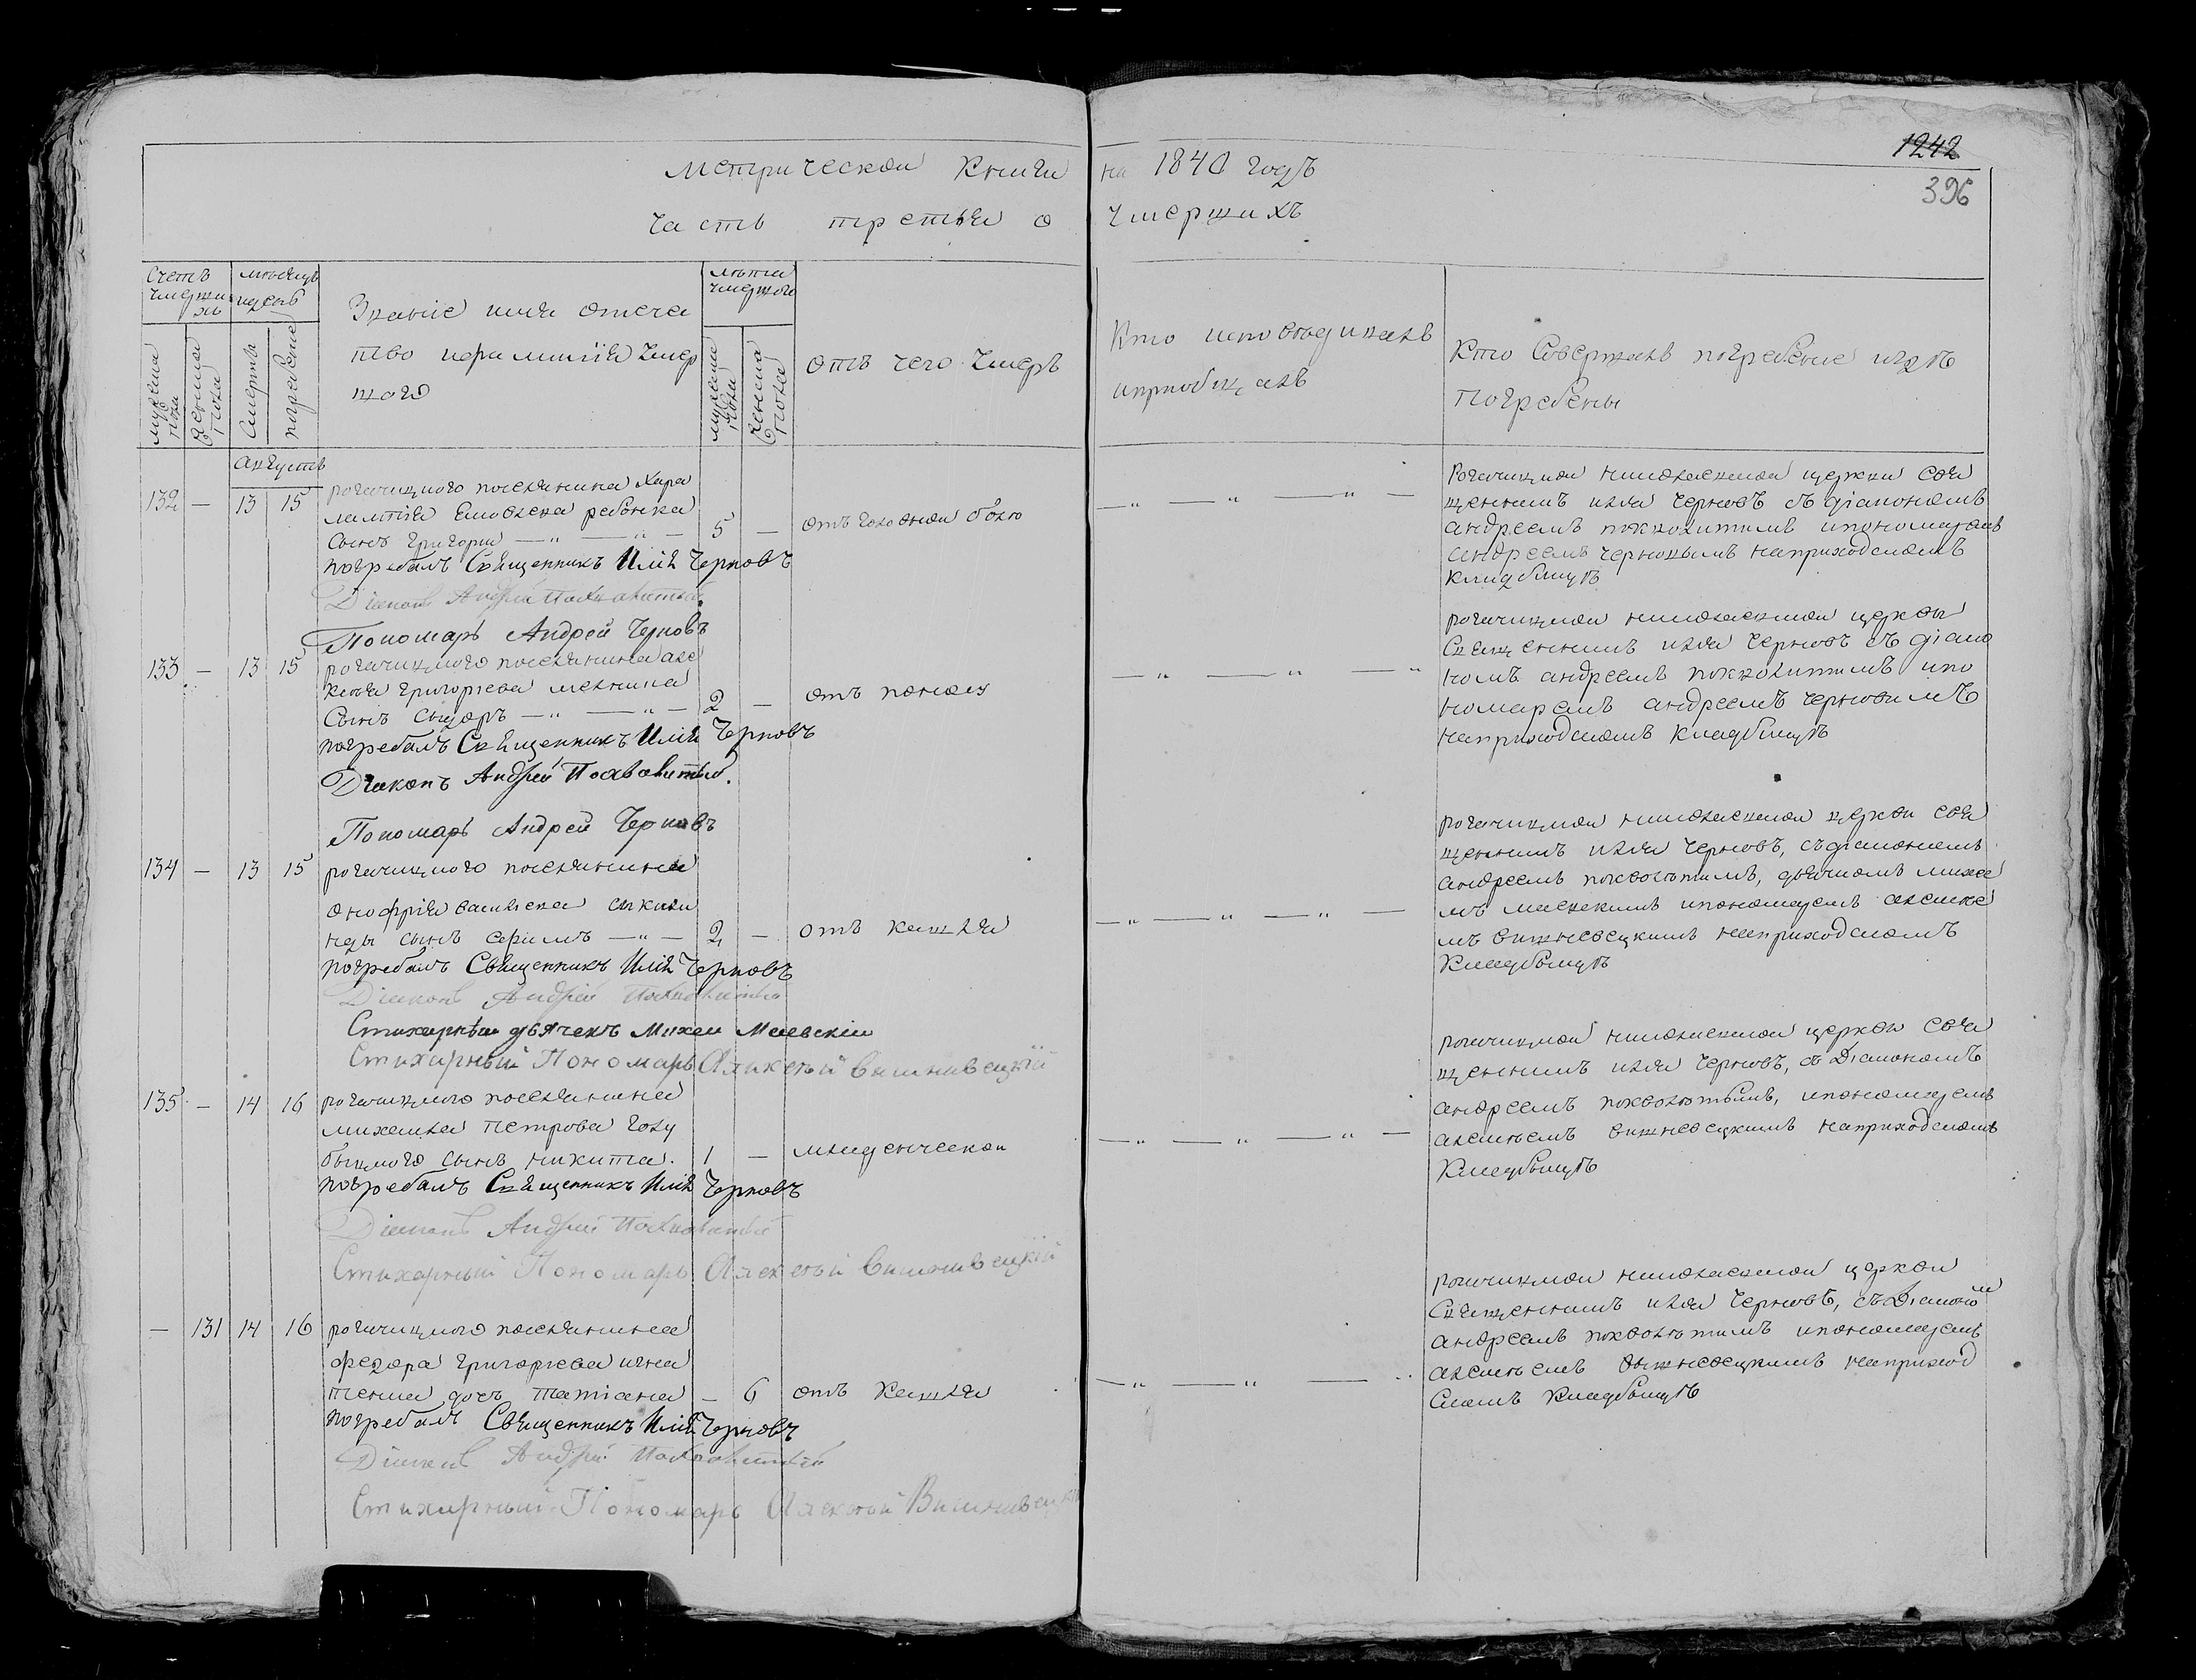 1242
396
Метрической Книги на 1840 годъ
Часть третья о умершихъ
Счетъ умершихъ
мужеска пола
женска пола
месяцъ и день
Смерты
погребение
Звание имя отечество и фамилия умершого
лѣта умершого
мужеска пола
женска пола
отъ чего умеръ
Кто исповѣдивалъ и приобщалъ
Кто Совершалъ погребение и гдѣ
погребены
августъ
132 — 13 15 рогачицкого поселянина Хара
лампiя
сынъ григорий — " — " — 5 — отъ головной болю
погребалъ Священникъ Илiя Черновъ
Дiаконъ Андрей Похвалитый
Пономарь Андрей Черновъ
— " — " — " —
Рогачицкой николаевской церкви свя
щенникъ илия Черновъ съ дiакономъ
андреемъ похвалитимъ и пономаремъ
андреемъ черновымъ на приходскомъ
кладбищѣ
133 — 13 15 рогачицкого поселянина алек
григориева мелника
сынъ — " — " — 2 — отъ поносу
погребалъ Священникъ Илiя Черновъ
Дiаконъ Андрей Похвалитый.
Пономарь Андрей Черновъ
— " — " — "
рогачицкой николаевской церкви
Священникъ илия Черновъ съ дiако
номъ андреемъ похвалитимъ и по
номаремъ андреемъ черновимъ
на приходскомъ кладбищѣ
134 — 13 15 рогачицкого поселянина
онофрiя василиева
сынъ — " — 2 — отъ кашля
погребалъ Священникъ Илiя Черновъ
Дiаконъ Андрей Похвалитый
Стихарный дьячекъ Михаи Маевскiй
Стихарный Пономарь Алексѣй Вишнивецкий
— " — " — " —
рогачицкой николаевской церкви свя
щенникъ илия Черновъ, съ дiакономъ
андреемъ похвалѣтимъ, дьячкомъ михаи
мъ маевскимъ и пономаремъ алексѣе
мъ вишневецкимъ на приходскомъ
Кладбищѣ
135 — 14 16 рогачицкого поселянина
михаила Петрова голу
бицкого сынъ никита. 1 — младенческой
погребалъ Священникъ Илiя Черновъ
Дiаконъ Андрей Похвалитый
Стихарный Пономарь Алексѣй Вишнивецкий
— " — " — " —
рогачицкой николаевской церкви свя
щенникъ илия Черновъ, съ Дiакономъ
андреемъ похвалѣтымъ, и пономаремъ
алексѣемъ вишневецкимъ на приходскомъ
Кладбищѣ
— 131 14 16 рогачицкого поселянина
федора григориева игна
тенка дочь татiана — 6 отъ кашля
погребалъ Священникъ Илiя Черновъ
Дiаконъ Андрей Похвалитый
Стихарный Пономарь Алексѣй Вишнивецкий
— " — " —
рогачицкой николаевской церкви
Священникъ илия Черновъ, съ Дiаконом
андреемъ похвалѣтимъ и пономаремъ
алексѣемъ вишневецкимъ на приход
скомъ Кладбищѣ